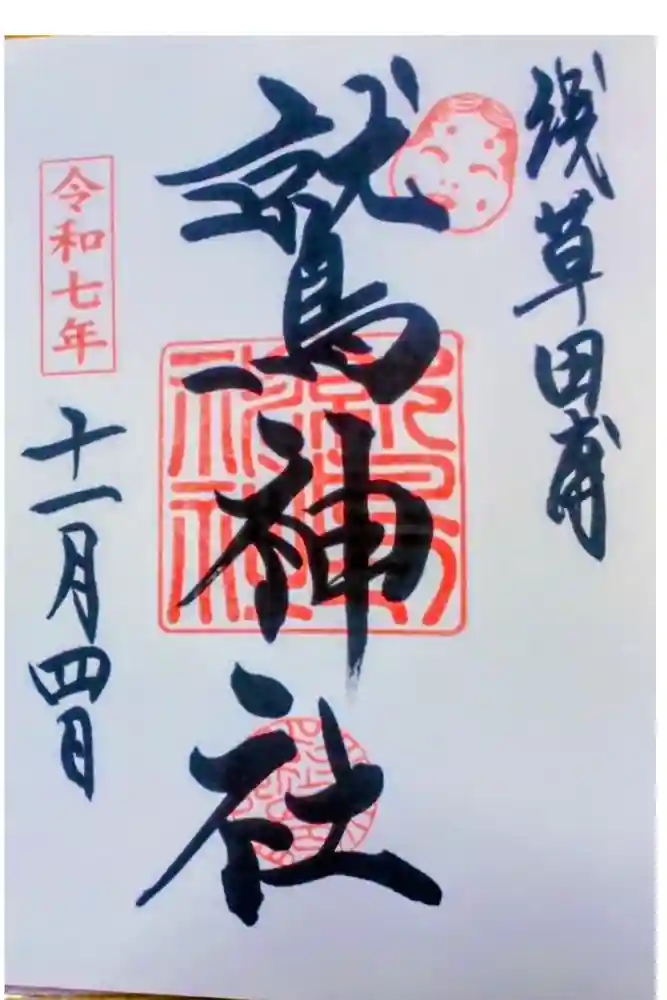 浅草田甫
鷲神社
令和七年
十一月四日